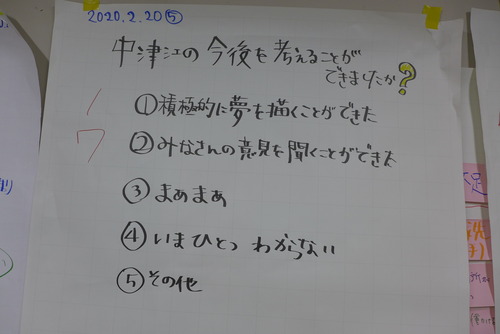 2020.2.20⑤
中津江の今後を考えることが
できましたか?
1 ①積極的に夢を描くことができた
7 ②みなさんの意見を聞くことができた
③まぁまぁ
④いまひとつ わからない
⑤その他
足